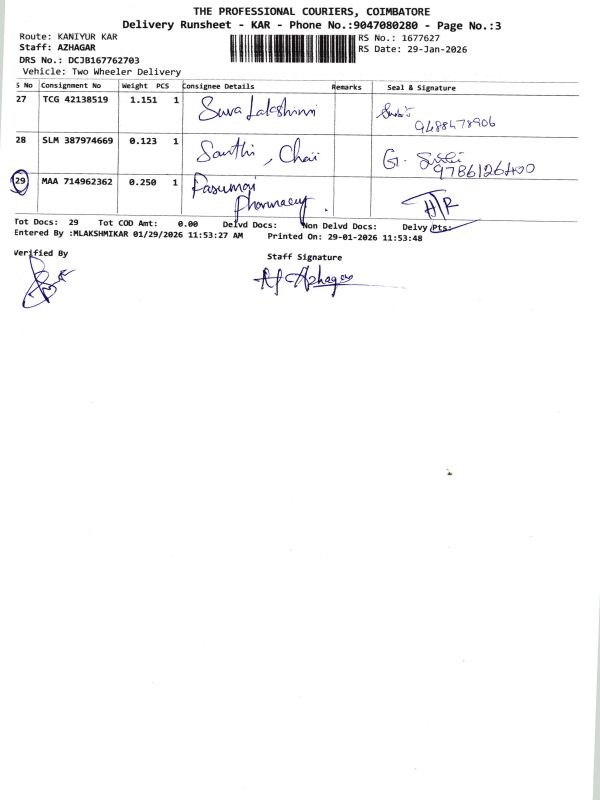 THE PROFESSIONAL COURIERS, COIMBATORE
Delivery Runsheet - KAR - Phone No.:9047080280 - Page No.:3
Route: KANIYUR KAR
RS No.: 1677627
Staff: AZHAGAR
RS Date: 29-Jan-2026
DRS No.: DCJB167762703
Vehicle: Two Wheeler Delivery
S No Consignment No Weight PCS Consignee Details Remarks Seal & Signature
27 TCG 42138519 1.151 1 Suva Lakshmi
9488478906
28 SLM 387974669 0.123 1 Santhi, Chai G.
9786126400
29 MAA 714962362 0.250 1 Pasumai
Pharmacy.
Tot Docs: 29 Tot COD Amt: 0.00 Delvd Docs: Non Delvd Docs: Delvy Pts:
Entered By :MLAKSHMIKAR 01/29/2026 11:53:27 AM Printed On: 29-01-2026 11:53:48
Verified By
Staff Signature
Azhagar